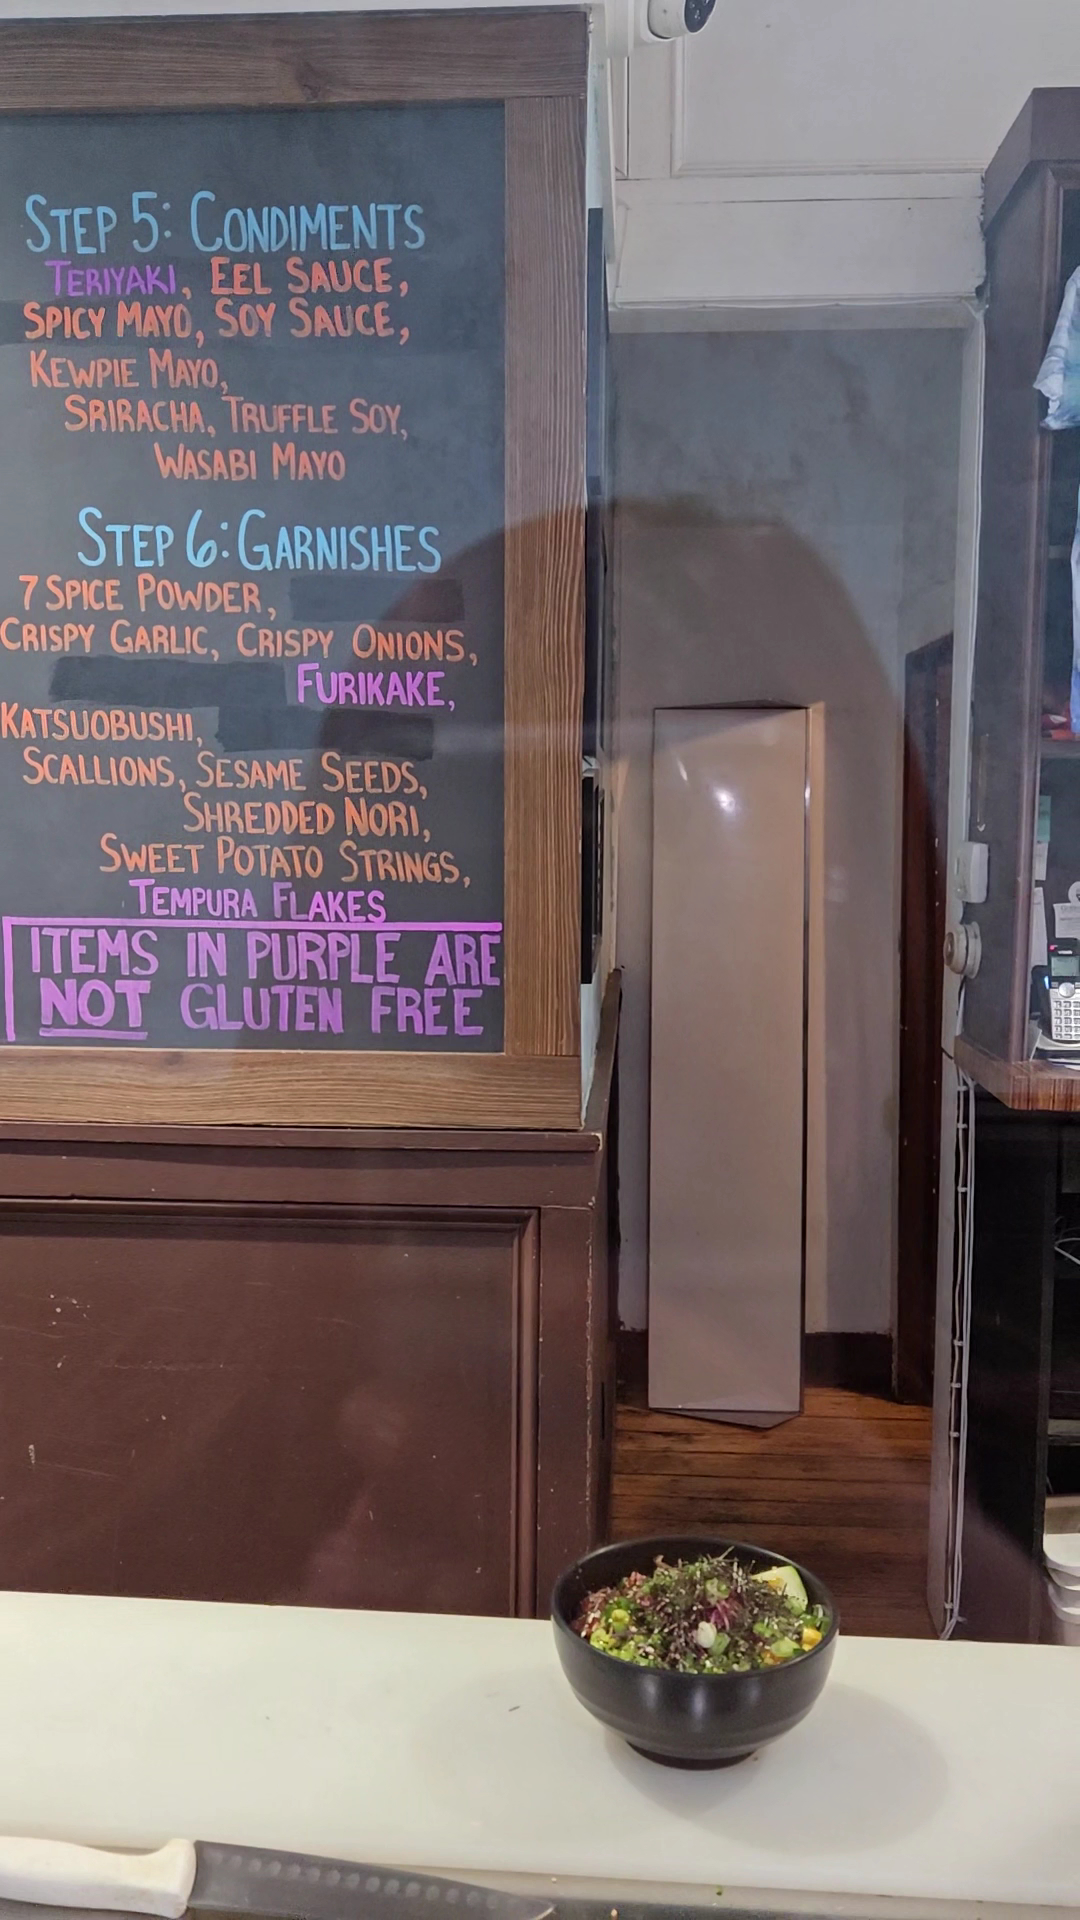 STEP 5: CONDIMENTS
TERIYAKI, EEL SAUCE,
SPICY MAYO, SOY SAUCE,
KEWPIE MAYO,
SRIRACHA, TRUFFLE SOY,
WASABI MAYO
STEP 6: GARNISHES
7 SPICE POWDER,
CRISPY GARLIC, CRISPY ONIONS,
FURIKAKE,
KATSUOBUSHI,
SCALLIONS, SESAME SEEDS,
SHREDDED NORI,
SWEET POTATO STRINGS,
TEMPURA FLAKES
ITEMS IN PURPLE ARE
NOT GLUTEN FREE